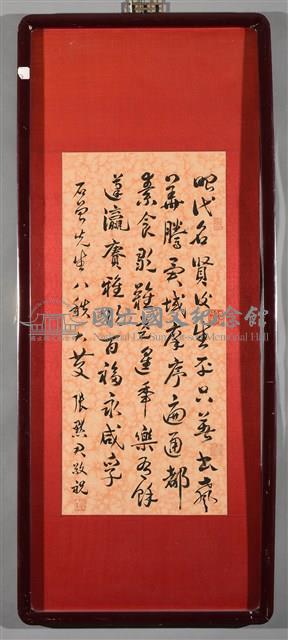 昭代名賢汝生平只著書聲
華騰異域庠序遍通都
素食歌難老遐年樂有餘
蓬瀛賡雅什百福永咸孚
石曾先生八秩大慶 張默君敬祝
國立國父紀念館
National Dr. Sun Yat-sen Memorial Hall